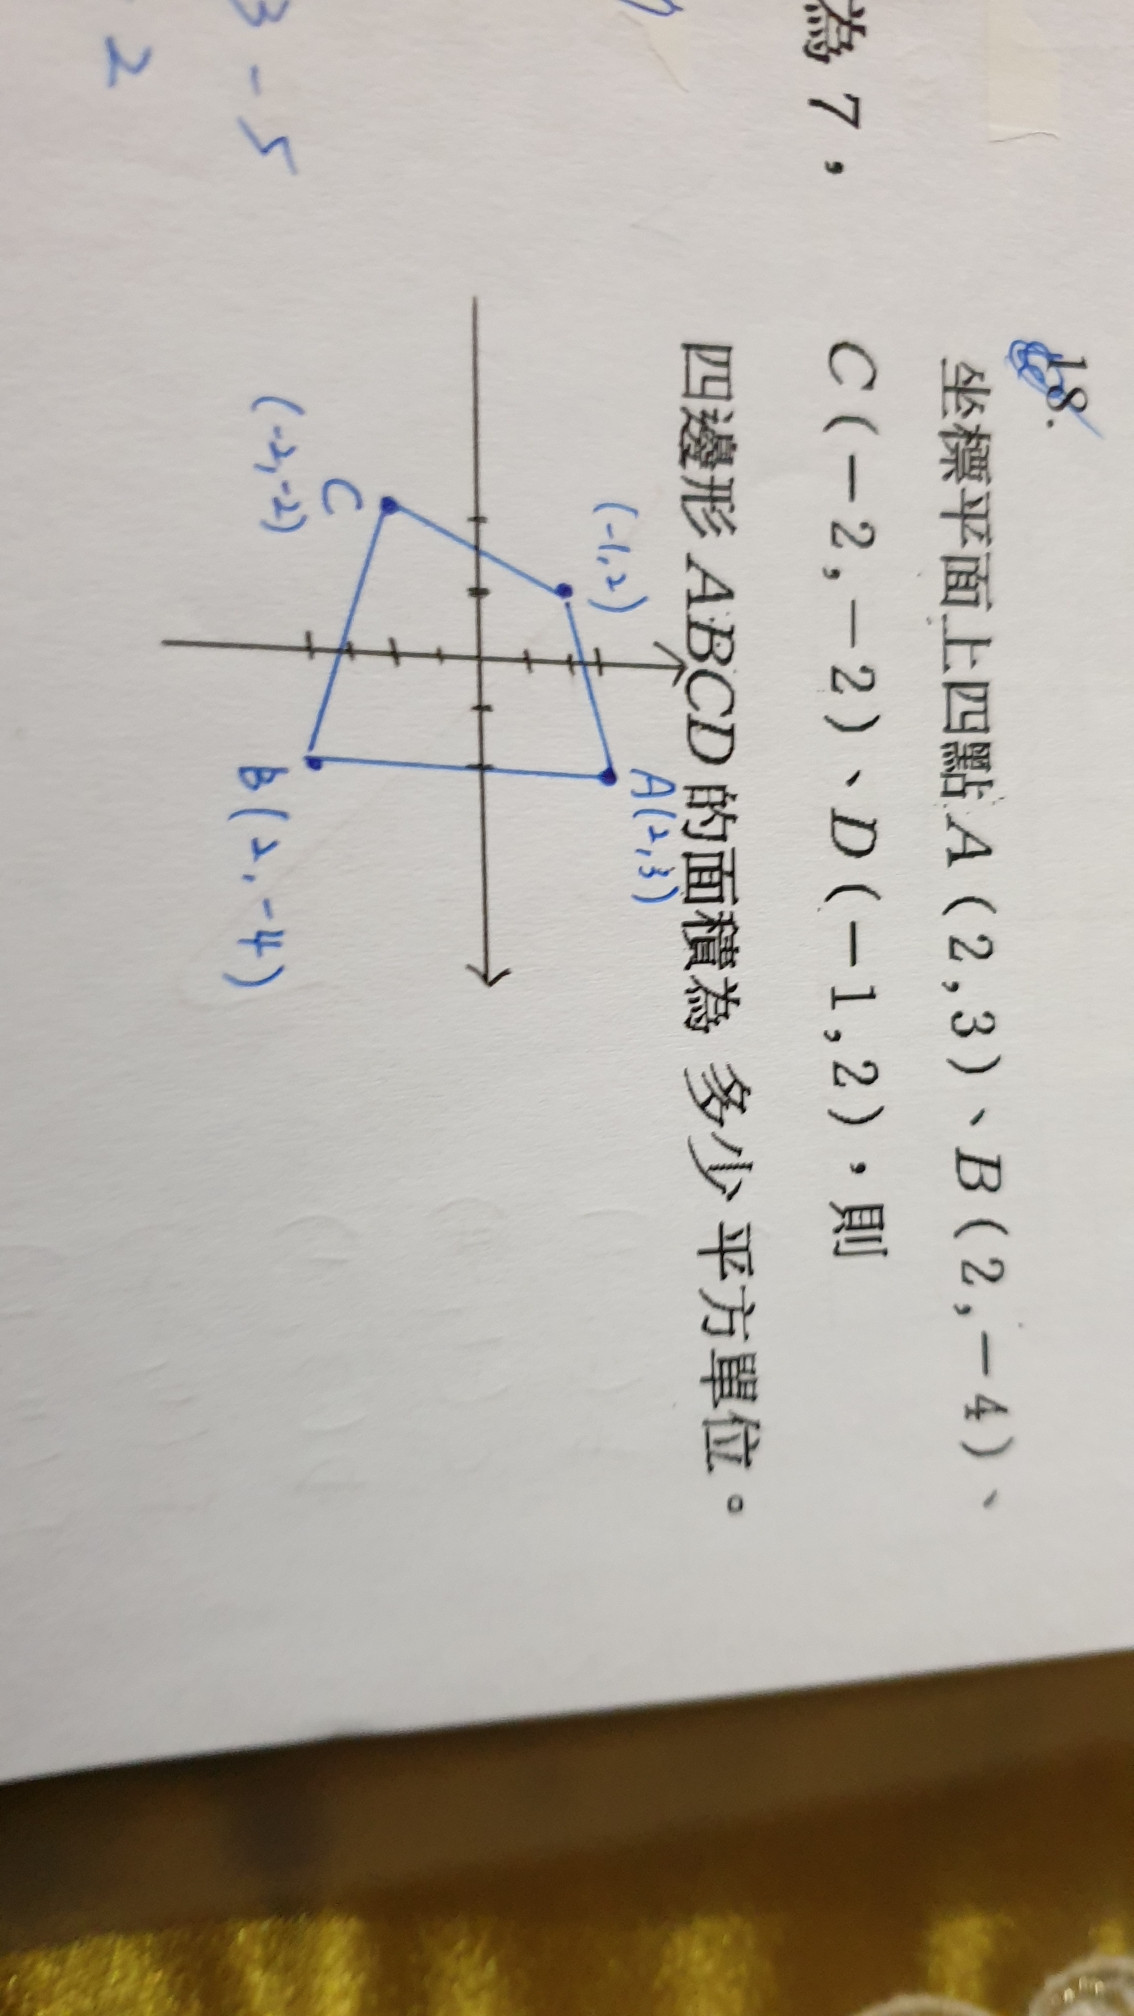 為 7，
3-5
2
18.
坐標平面上四點 A(2,3)、B(2,-4)、
C(-2,-2)、D(-1,2)，則
四邊形 ABCD 的面積為 多少平方單位。
(-1,2)
A(2,3)
C
(-2,-2)
B(2,-4)